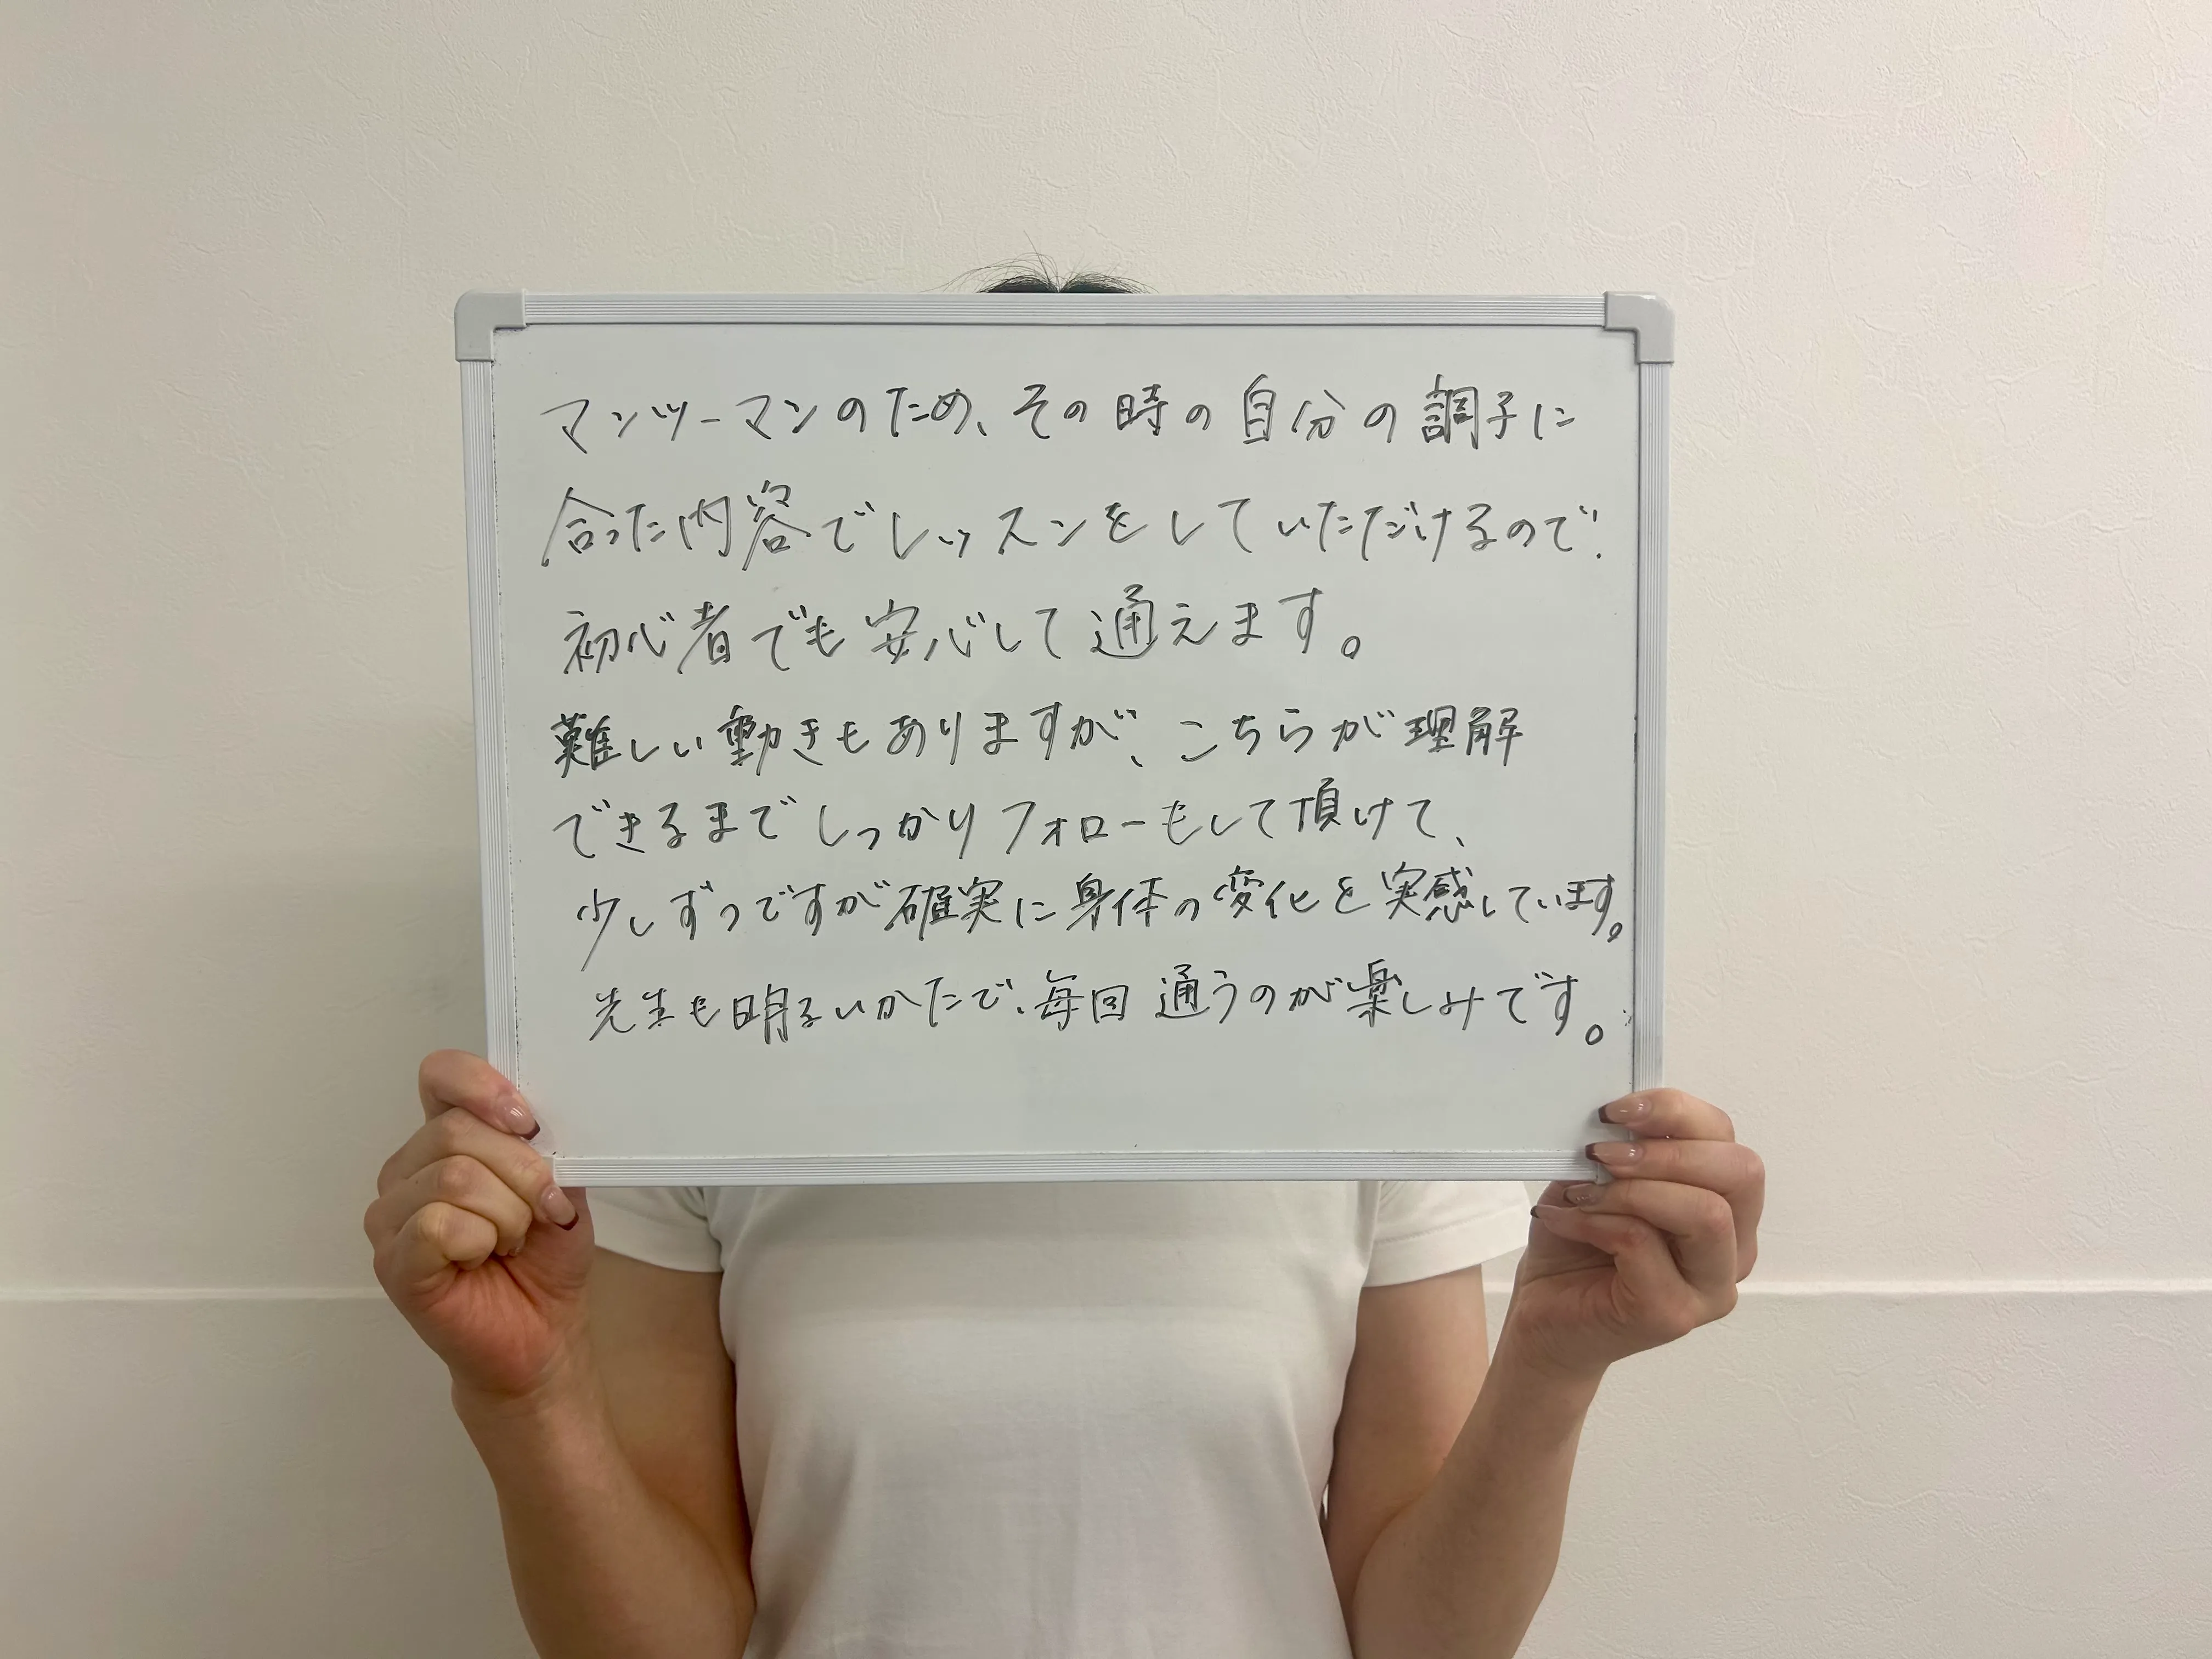 マンツーマンのため、その時の自分の調子に
合った内容でレッスンをしていただけるので、
初心者でも安心して通えます。
難しい動きもありますが、こちらが理解
できるまでしっかりフォローもして頂けて、
少しずつですが確実に身体の変化を実感しています。
先生も明るいかたで、毎回通うのが楽しみです。